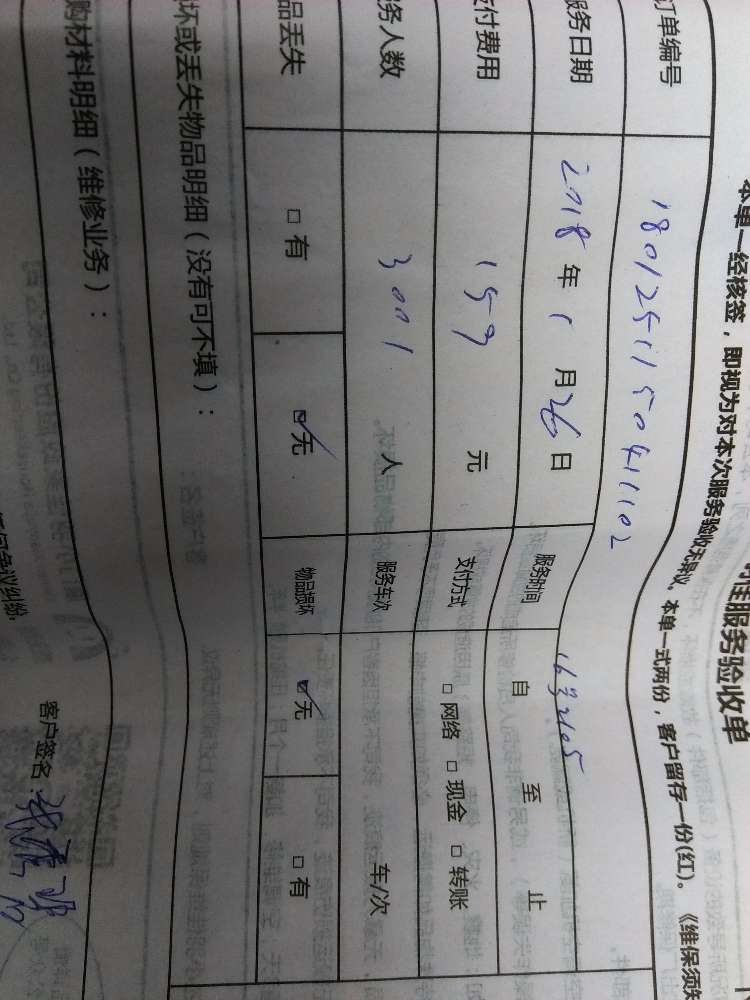 服务验收单
本单一经核签，即视为对本次服务验收无异议。本单一式两份，客户留存一份(红)。《维保须知
订单编号 180125115041102
服务日期 2018年1月26日 服务时间 自 至 止
支付费用 159元 支付方式 □网络 □现金 □转账
务人数 3001 人 服务车次 车/次
品丢失 □有 ☑无 物品损坏 ☑无 □有
坏或丢失物品明细（没有可不填）：
购材料明细（维修业务）：
何争议纠纷
客户签名：